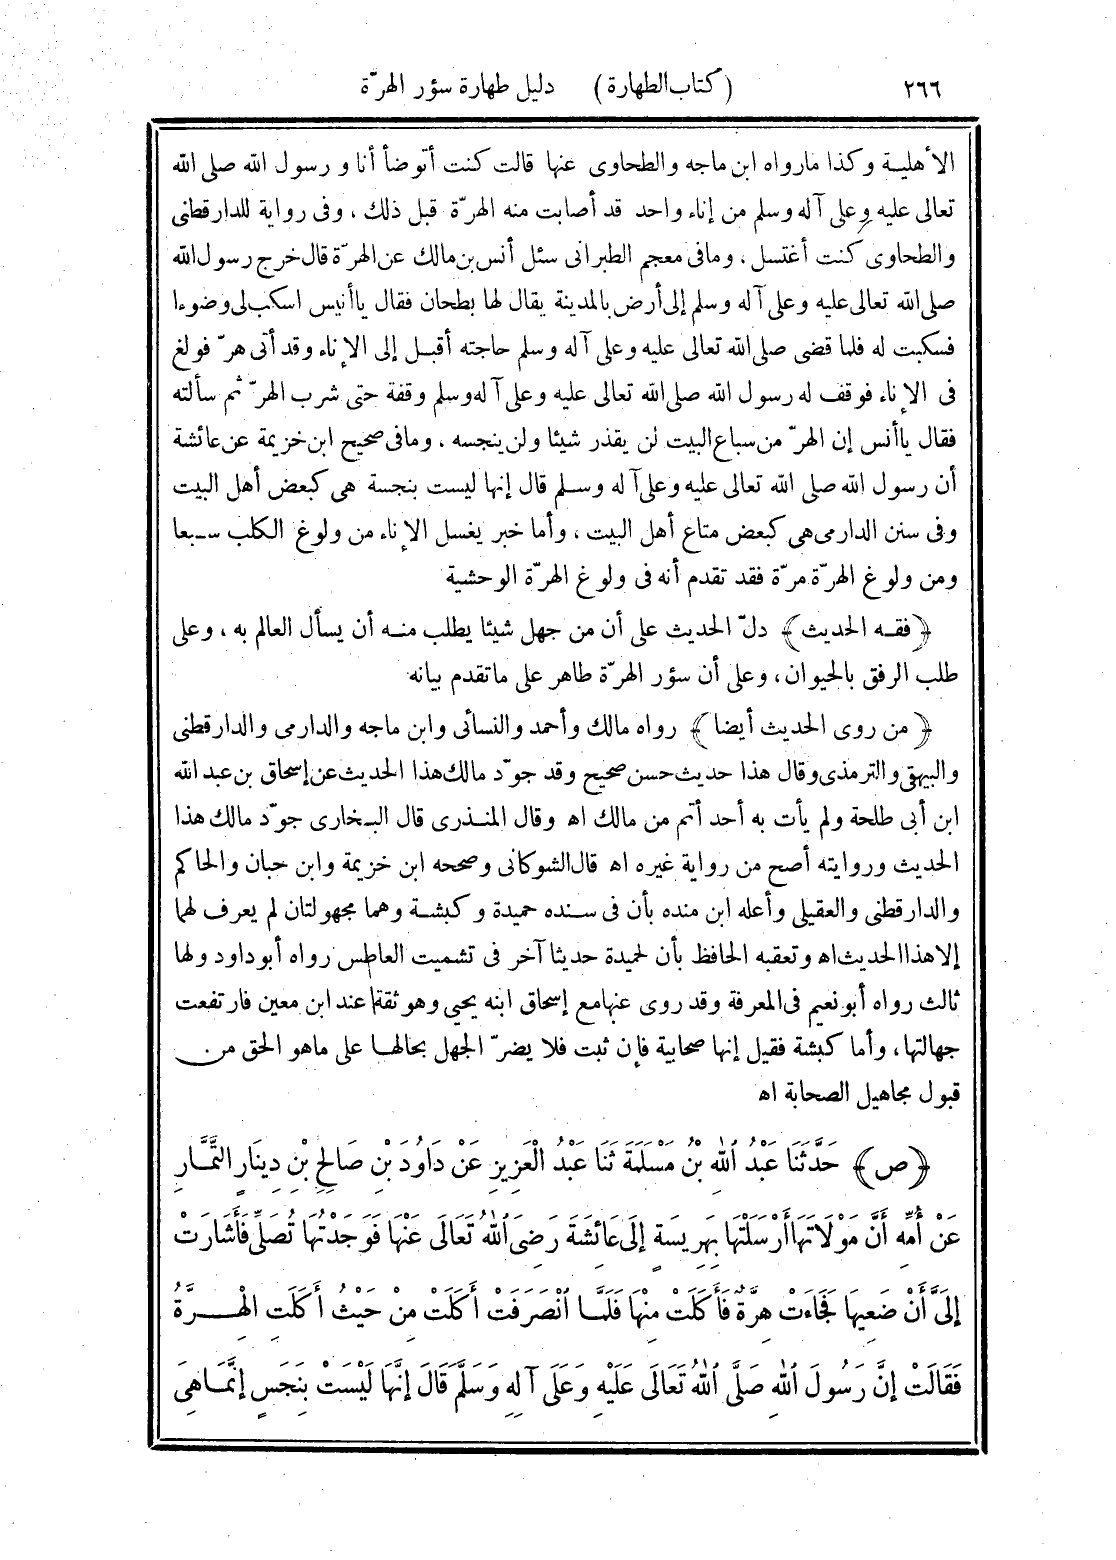 ٢٦٦ (كتاب الطهارة) دليل طهارة سؤر الهرّة
الأهلية وكذا مارواه ابن ماجه والطحاوى عنها قالت كنت أتوضأ أنا ورسول الله صلى الله
تعالى عليه وعلى آله وسلم من إناء واحد قد أصابت منه الهرّة قبل ذلك، وفى رواية للدارقطنى
والطحاوى كنت أغتسل، ومافى معجم الطبرانى سئل أنس بن مالك عن الهرّة قال خرج رسول الله
صلى الله تعالى عليه وعلى آله وسلم إلى أرض بالمدينة يقال لها بطحان فقال ياأنيس اسكب لى وضوءا
فسكبت له فلما قضى صلى الله تعالى عليه وعلى آله وسلم حاجته أقبل إلى الإناء وقد أتى هرّ فولغ
فى الإناء فوقف له رسول الله صلى الله تعالى عليه وعلى آله وسلم وقفة حتى شرب الهرّ ثم سألته
فقال ياأنس إن الهرّ من سباع البيت لن يقذر شيئا ولن ينجسه، ومافى صحيح ابن خزيمة عن عائشة
أن رسول الله صلى الله تعالى عليه وعلى آله وسلم قال إنها ليست بنجسة هى كبعض أهل البيت
وفى سنن الدارمى هى كبعض متاع أهل البيت، وأما خبر يغسل الإناء من ولوغ الكلب سبعا
ومن ولوغ الهرّة مرّة فقد تقدم أنه فى ولوغ الهرّة الوحشية
﴿فقه الحديث﴾ دلّ الحديث على أن من جهل شيئا يطلب منه أن يسأل العالم به، وعلى
طلب الرفق بالحيوان، وعلى أن سؤر الهرّة طاهر على ماتقدم بيانه
﴿من روى الحديث أيضا﴾ رواه مالك وأحمد والنسائى وابن ماجه والدارمى والدارقطنى
والبيهقى والترمذى وقال هذا حديث حسن صحيح وقد جوّد مالك هذا الحديث عن إسحاق بن عبد الله
ابن أبى طلحة ولم يأت به أحد أتم من مالك اه وقال المنذرى قال البخارى جوّد مالك هذا
الحديث وروايته أصح من رواية غيره اه قال الشوكانى وصححه ابن خزيمة وابن حبان والحاكم
والدارقطنى والعقيلى وأعله ابن منده بأن فى سنده حميدة وكبشة وهما مجهولتان لم يعرف لهما
إلا هذا الحديث اه وتعقبه الحافظ بأن لحميدة حديثا آخر فى تشميت العاطس رواه أبوداود ولها
ثالث رواه أبونعيم فى المعرفة وقد روى عنها مع إسحاق ابنه يحيى وهو ثقة عند ابن معين فارتفعت
جهالتها، وأما كبشة فقيل إنها صحابية فإن ثبت فلا يضرّ الجهل بحالها على ماهو الحق من
قبول مجاهيل الصحابة اه
﴿ص﴾ حَدَّثَنَا عَبْدُ اللهِ بْنُ مَسْلَمَةَ ثَنَا عَبْدُ الْعَزِيزِ عَنْ دَاوُدَ بْنِ صَالِحِ بْنِ دِينَارٍ التَّمَّارِ
عَنْ أُمِّهِ أَنَّ مَوْلَاتَهَا أَرْسَلَتْهَا بِهَرِيسَةٍ إِلَى عَائِشَةَ رَضِىَ اللهُ تَعَالَى عَنْهَا فَوَجَدْتُهَا تُصَلِّى فَأَشَارَتْ
إِلَىَّ أَنْ ضَعِيهَا فَجَاءَتْ هِرَّةٌ فَأَكَلَتْ مِنْهَا فَلَمَّا انْصَرَفَتْ أَكَلَتْ مِنْ حَيْثُ أَكَلَتِ الْهِرَّةُ
فَقَالَتْ إِنَّ رَسُولَ اللهِ صَلَّى اللهُ تَعَالَى عَلَيْهِ وَعَلَى آلِهِ وَسَلَّمَ قَالَ إِنَّهَا لَيْسَتْ بِنَجَسٍ إِنَّمَا هِىَ